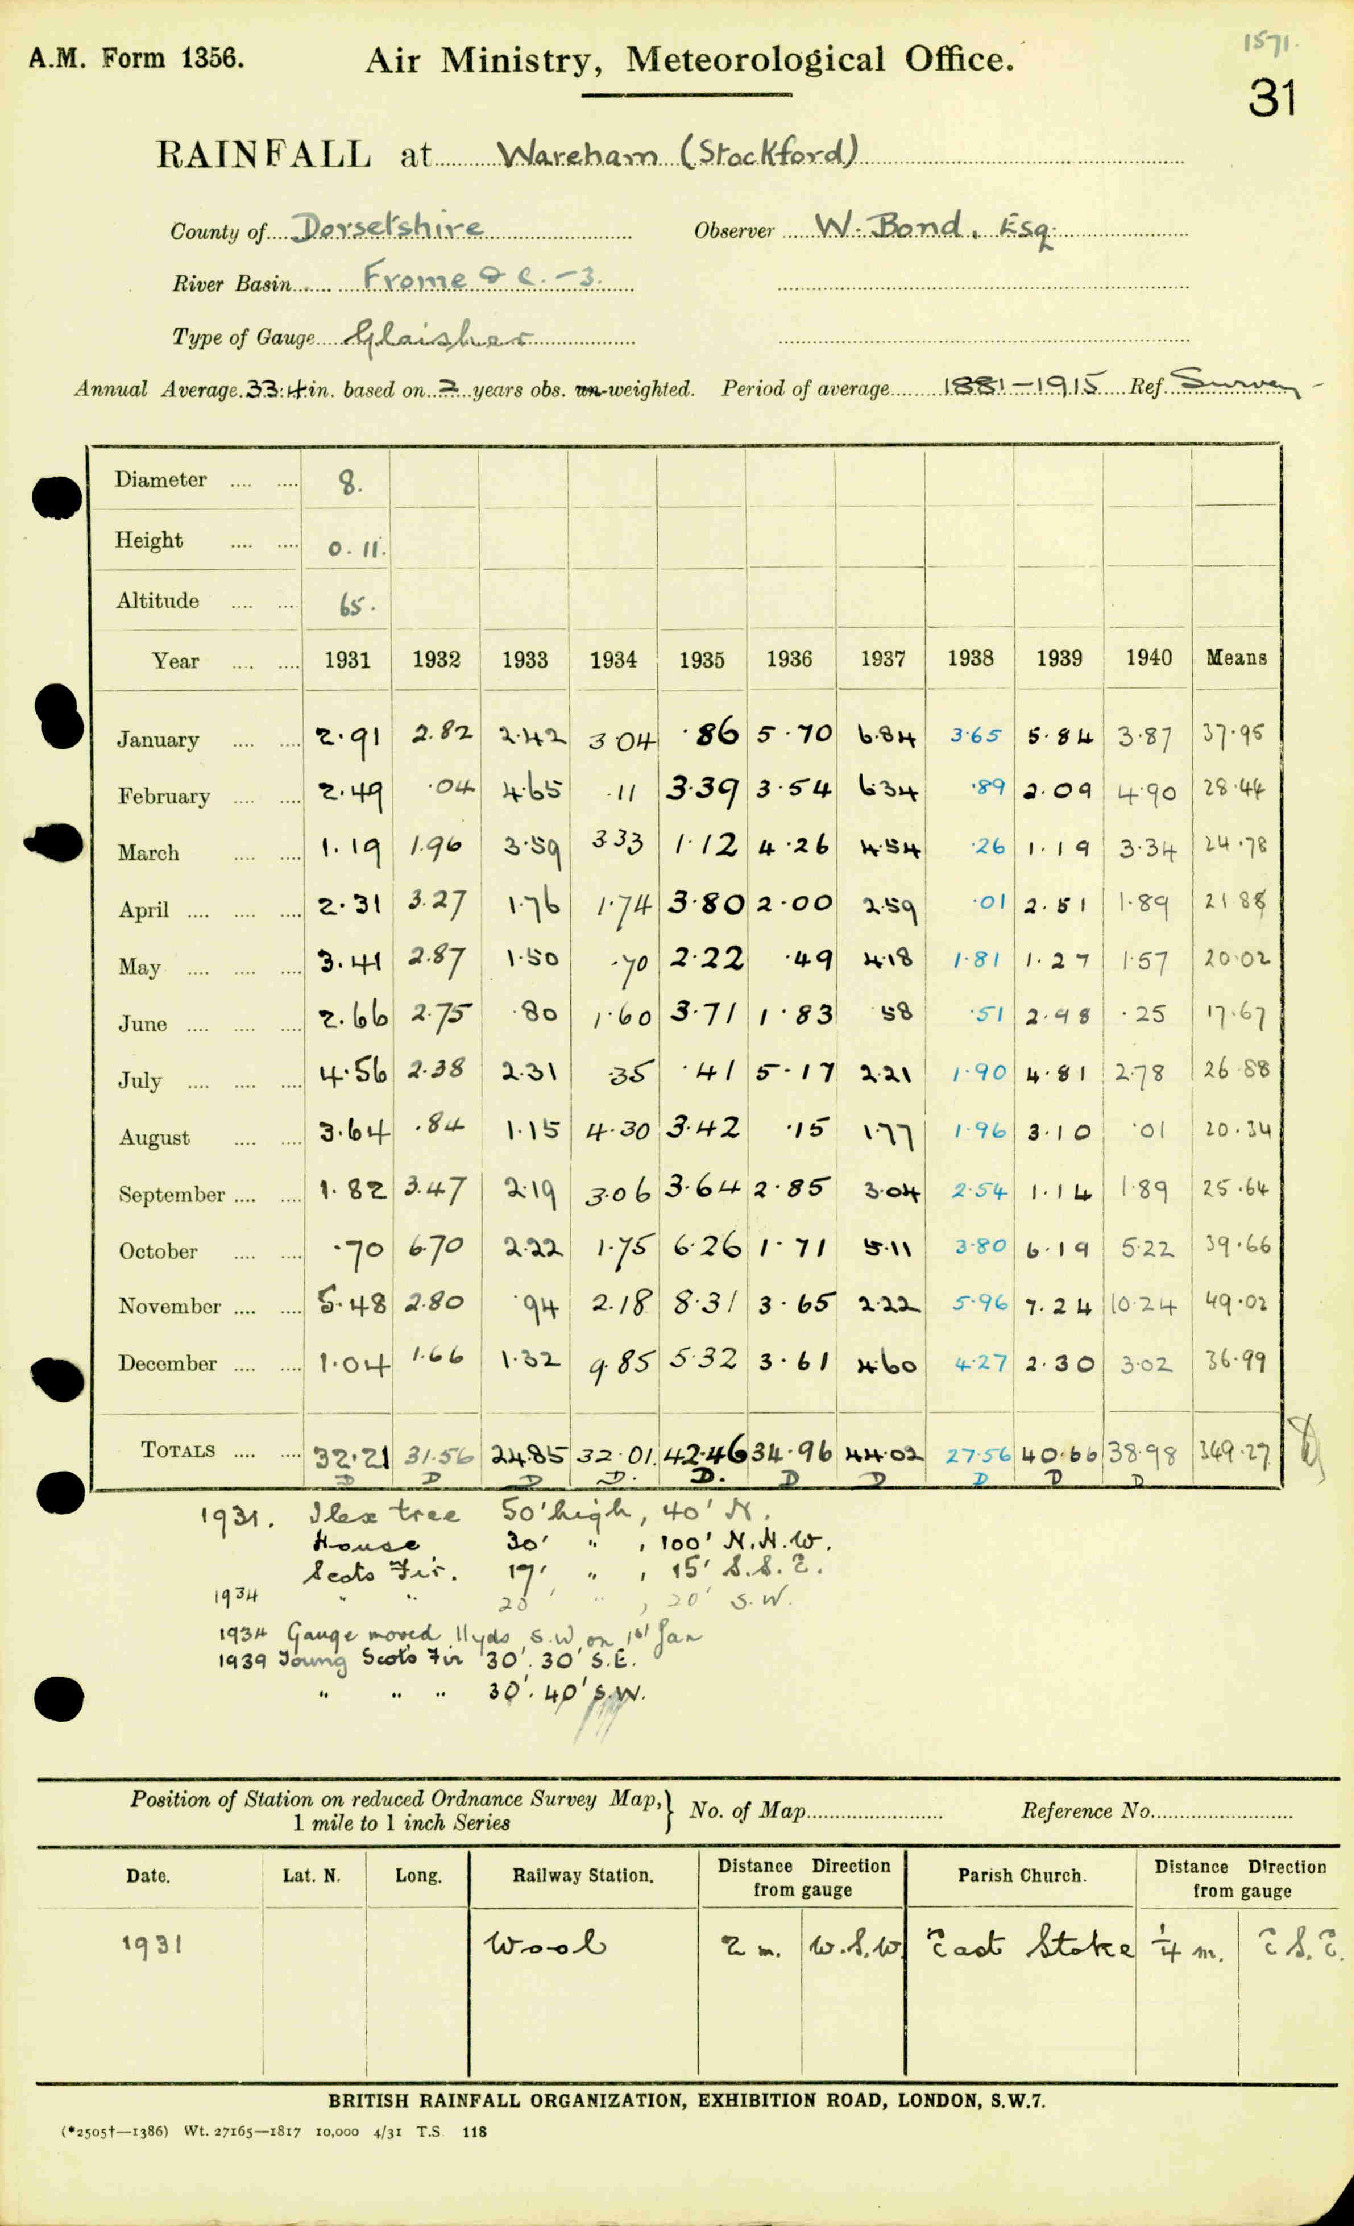 1571.
A.M. Form 1356. Air Ministry, Meteorological Office.
31
RAINFALL at Wareham (Stockford)
County of Dorsetshire Observer W. Bond, Esq.
River Basin Frome &c. -3.
Type of Gauge Glaisher
Annual Average 33.4 in. based on 2 years obs. un-weighted. Period of average 1881-1915 Ref. Survey
Diameter 8.
Height 0.11.
Altitude 65.
Year 1931 1932 1933 1934 1935 1936 1937 1938 1939 1940 Means
January 2.91 2.82 2.42 3.04 .86 5.70 6.84 3.65 5.84 3.87 37.95
February 2.49 .04 4.65 .11 3.39 3.54 6.34 .89 2.09 4.90 28.44
March 1.19 1.96 3.59 3.33 1.12 4.26 4.54 .26 1.19 3.34 24.78
April 2.31 3.27 1.76 1.74 3.80 2.00 2.59 .01 2.51 1.89 21.88
May 3.41 2.87 1.50 .70 2.22 .49 4.18 1.81 1.27 1.57 20.02
June 2.66 2.75 .80 1.60 3.71 1.83 .58 .51 2.98 .25 17.67
July 4.56 2.38 2.31 .35 .41 5.17 2.21 1.90 4.81 2.78 26.88
August 3.64 .84 1.15 4.30 3.42 .15 1.77 1.96 3.10 .01 20.34
September 1.82 3.47 2.19 3.06 3.64 2.85 3.04 2.54 1.14 1.89 25.64
October .70 6.70 2.22 1.75 6.26 1.71 5.11 3.80 6.19 5.22 39.66
November 5.48 2.80 .94 2.18 8.31 3.65 2.22 5.96 7.24 10.24 49.02
December 1.04 1.66 1.32 9.85 5.32 3.61 4.60 4.27 2.30 3.02 36.99
TOTALS 32.21 31.56 24.85 32.01 42.46 34.96 44.02 27.56 40.66 38.98 349.27
D D D D. D. D D D D D
1931. Ilex tree 50' high, 40' N.
House 30' " , 100' N.N.W.
Scots Fir. 17' " , 15' S.S.E.
1934 " " 20' " , 20' S.W.
1934 Gauge moved 11yds S.W. on 1st Jan
1939 Young Scots Fir 30'. 30' S.E.
" " " 30'. 40' S.W.
Position of Station on reduced Ordnance Survey Map, } No. of Map Reference No.
1 mile to 1 inch Series
Date. Lat. N. Long. Railway Station. Distance Direction from gauge Parish Church. Distance Direction from gauge
1931 Wool 2 m. W.S.W. East Stoke 1/4 m. E.S.E.
BRITISH RAINFALL ORGANIZATION, EXHIBITION ROAD, LONDON, S.W.7.
(*2505†—1386) Wt. 27165—1817 10,000 4/31 T.S. 118